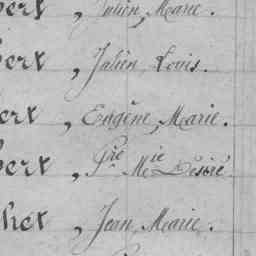 bert , Julien, Marie.
bert , Julien, Louis.
ert , Eugène, Marie.
bert , Pre Mie Désiré
het , Jean, Marie.